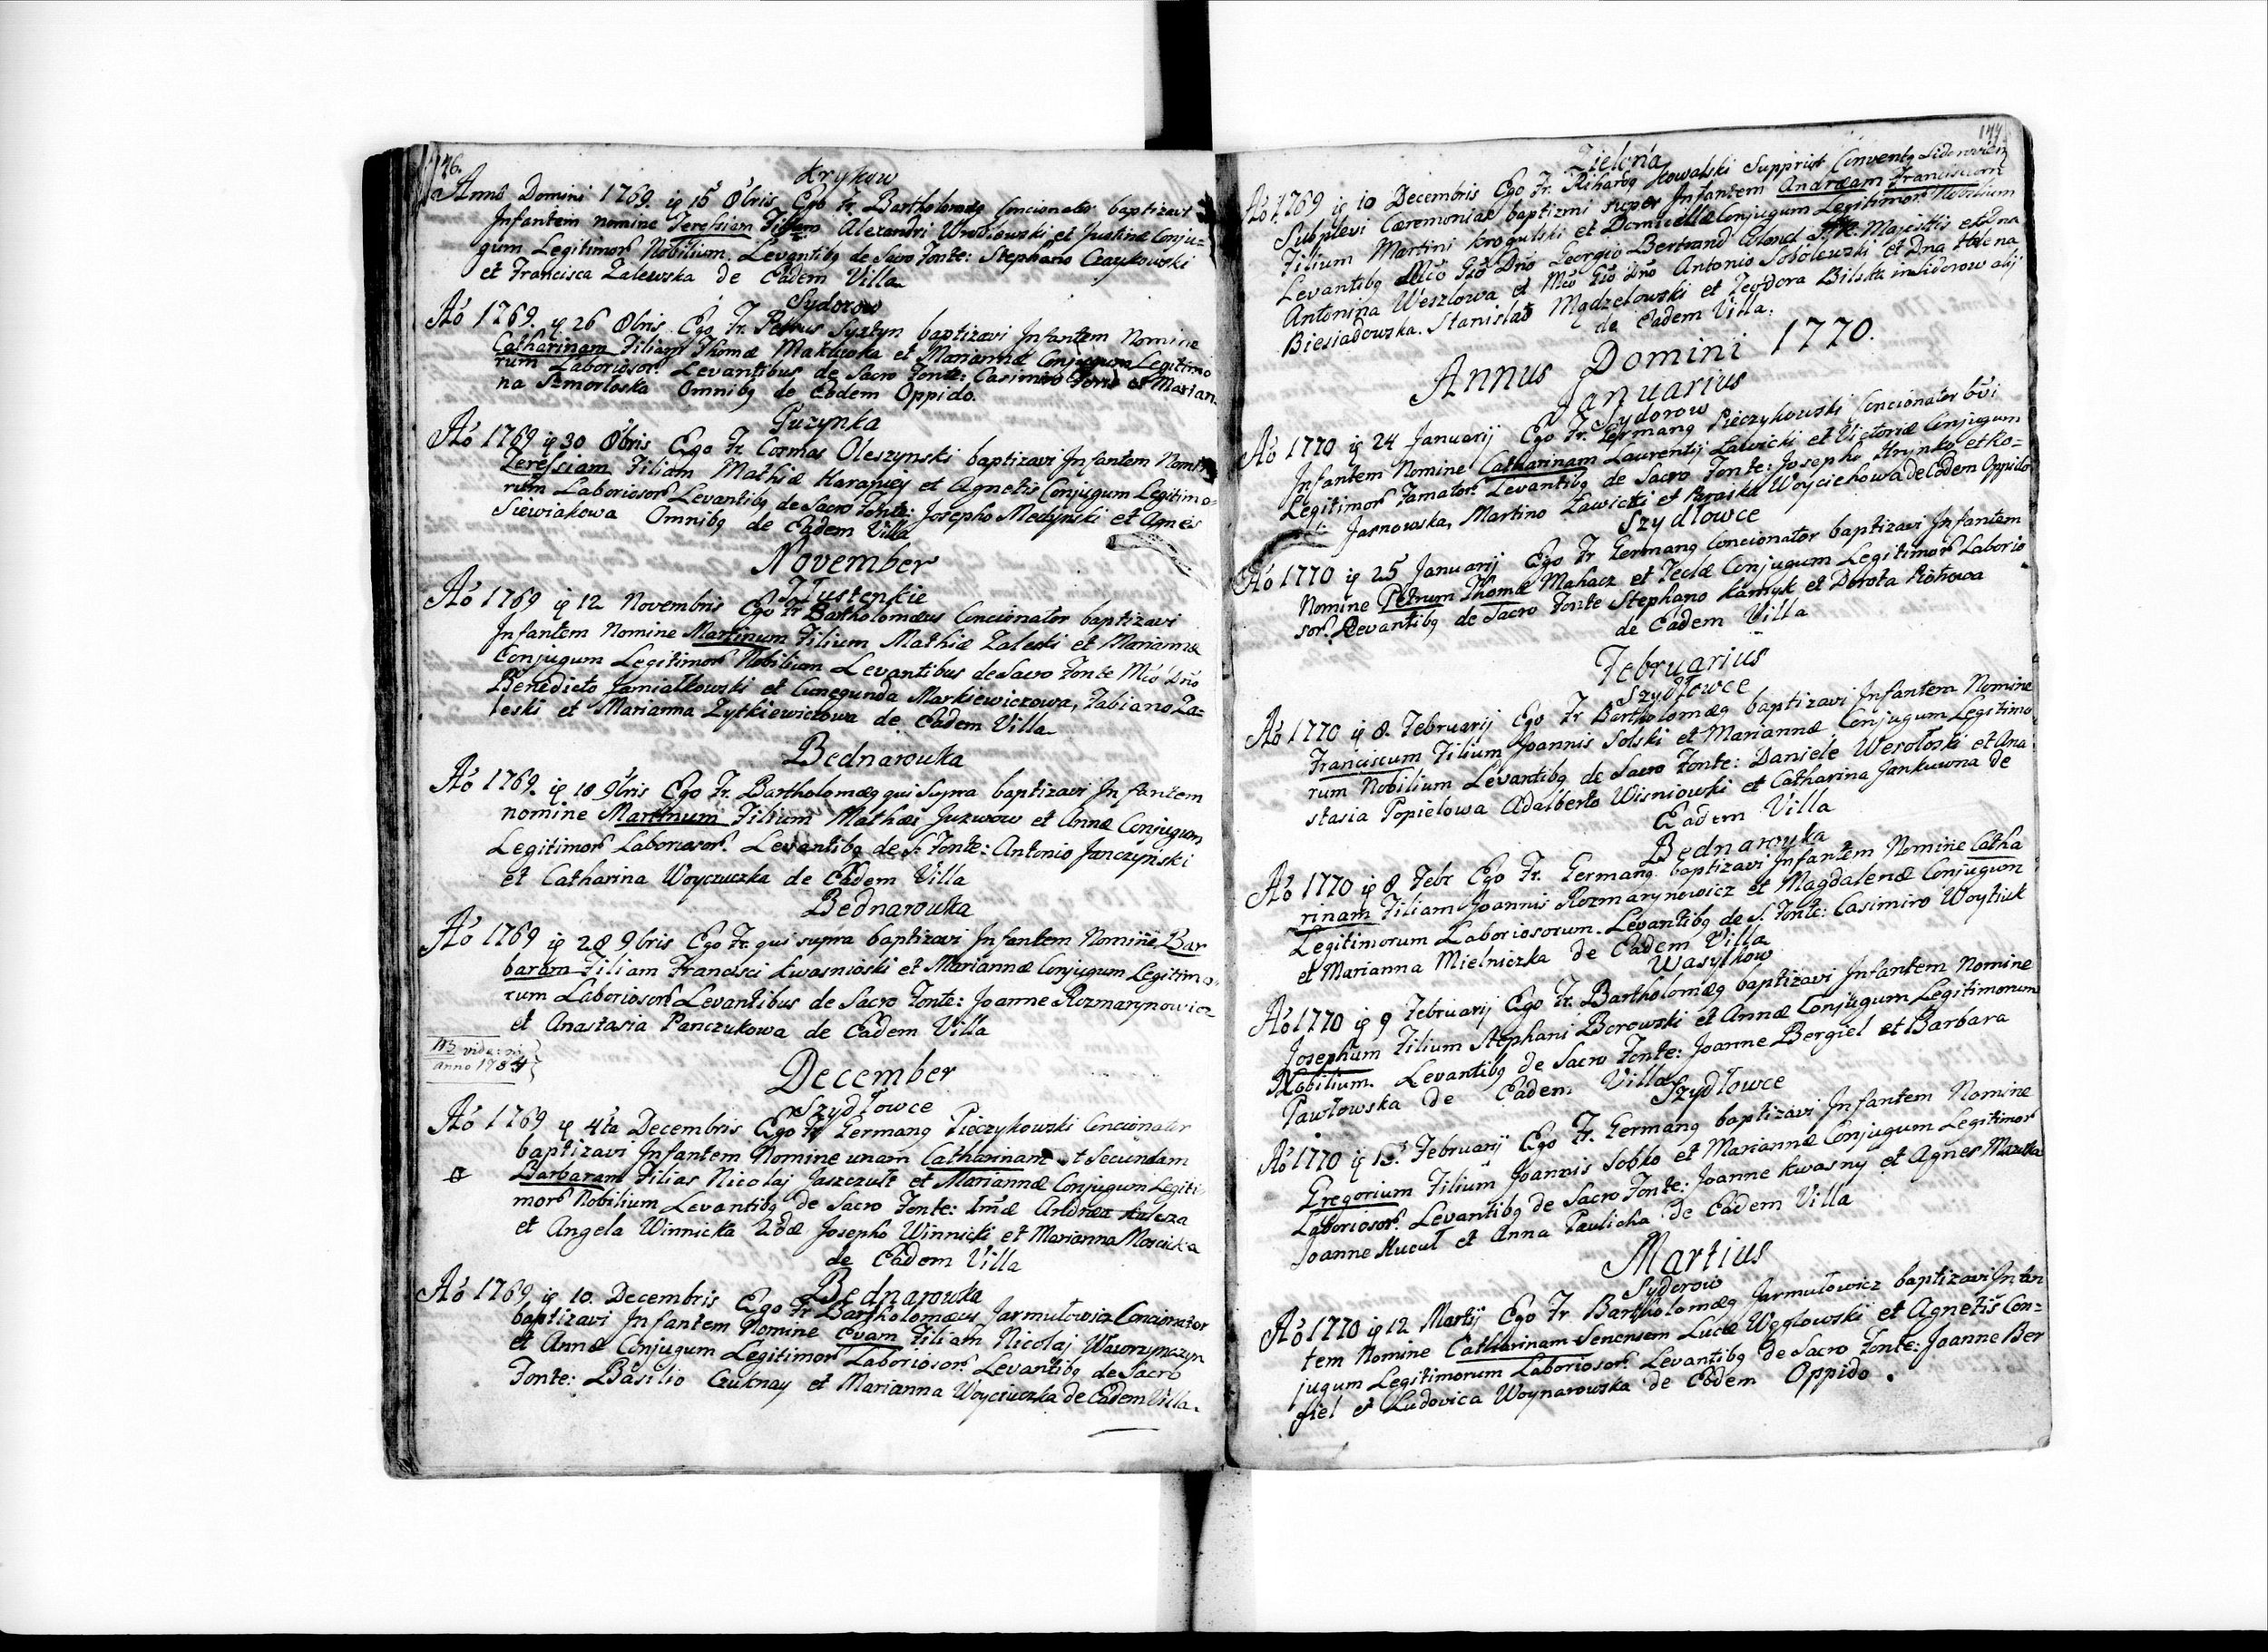 146.
Krykow
Anno Domini 1769. ip 15 8bris Ego Fr. Bartholomæg Concionator baptizavi
Infantem nomine Teressiam Filiam Alexandri Wroblewski et Justinæ Conju=
gum Legitimor Nobilium. Levantibg de Sacro Fonte: Stephano Czaykowski
et Francisca Zalewska de Eadem Villa
Sydorow
Ao 1769. ip 26 8bris. Ego Fr. Petrus baptizavi Infantem Nomine
Catharinam Filiam Thomæ et Mariannæ Conjugum Legitimo
rum Laboriosor. Levantibus de Sacro Fonte: Casimiro et Marian
na Omnibg de Eodem Oppido.
Puzynka
Ao 1769 ip 30 8bris Ego Fr. Cosmas Oleszynski baptizavi Infantem Nomi
Teressiam Filiam Mathiæ Harapiey et Agnetis Conjugum Legitimo
rum Laboriosor Levantibg de Sacro Fonte: Josepho Medynski et Agnes
Siewiakowa Omnibg de Eadem Villa
November
Tlustenkie
Ao 1769 ip 12 Novembris Ego Fr Bartholomæus Concionator baptizavi
Infantem Nomine Martinum Filium Mathiæ Zaleski et Mariannæ
Conjugum Legitimor Nobilium Levantibus de Sacro Fonte Mco Dno
Benedicto et Cunegunda Markiewiczowa, Fabiano Za=
leski et Marianna Zytkiewiczowa de Eadem Villa
Bednarowka
Ao 1769. ip 18 9bris Ego Fr. Bartholomæg qui Supra baptizavi Infantem
nomine Martinum Filium Mathæi Juzwow et Annæ Conjugum
Legitimor Laboriosor. Levantibg de S. Fonte: Antonio Janczynski
et Catharina Woyczuczka de Eadem Villa
Bednarowka
Ao 1769 ip 28 9bris Ego Fr. qui supra baptizavi Infantem Nomine Bar
baram Filiam Francisci Kwasnioski et Mariannæ Conjugum Legitimo
rum Laboriosor Levantibus de Sacro Fonte: Joanne Rozmarynowicz
et Anastasia Panczukowa de Eadem Villa
NB vide
anno 1784
December
Szydłowce
Ao 1769 ip 4ta Decembris Ego Fr Germang Pieczykowski Concionator
baptizavi Infantem Nomine unam Catharinam et Secundam
Barbaram Filias Nicolaj Jaszczułt et Mariannæ Conjugum Legiti
mor Nobilium Levantibg de Sacro Fonte: 1mæ Andrea
et Angela Winnicka 2dæ Josepho Winnicki et Marianna
de Eadem Villa
Bednarowka
Ao 1769 ip 10. Decembris Ego Fr Bartholomæus Jarmułowicz Concionator
baptizavi Infantem Nomine Evam Filiam Nicolaj Wawrzynczyn
et Annæ Conjugum Legitimor Laboriosor. Levantibg de Sacro
Fonte: Basilio et Marianna Woyciuczka de Eadem Villa.
147
Zielona
Ao 1769 ip 10 Decembris Ego Fr. Rihardg Kowalski Supprior Conventg Sidorovien
Suplevi Cæremonias baptizmi super Infantem Andræam Franciscum
Filium Martini Krogulski et Domicellæ Conjugum Legitimor Nobilium
Levantibg Mco Gso Dno Georgio Bertrand Majestatis et Dna
Antonina Weszlowa et Mco Gso Dno Antonio Sobolewski et Dna Helena
Biesiadowska. Stanislao Mądzelowski et Teodora Bilska in Sidorow alij
de Eadem Villa.
Annus Domini 1770.
Januarius
Sydorow
Ao 1770 ip 24 Januarij Ego Fr. Germang Pieczykowski Concionator bvi
Infantem Nomine Catharinam Laurentij Zawicki et Victoriæ Conjugum
Legitimor Famator. Levantibg de Sacro Fonte: Josepho Hrynko et Ro=
Jasnowska, Martino Zawicki et Paraska Woyciehowa de Eodem Oppido
Szydłowce
Ao 1770 ip 25 Januarij Ego Fr Germang Concionator baptizavi Infantem
Nomine Petrum Thomæ Mahacz et Teclæ Conjugum Legitimor Laborio
sor. Levantibg de Sacro Fonte Stephano Kamyk et Dorota
de Eadem Villa
Februarius
Szydłowce
Ao 1770 ip 8. Februarij Ego Fr Bartholomæg baptizavi Infantem Nomine
Franciscum Filium Joannis Solski et Mariannæ Conjugum Legitimo
rum Nobilium Levantibg de Sacro Fonte: Daniele Wesołoski et Ana
stasia Popielowa Adalberto Wisniowski et Catharina Jankuwna de
Eadem Villa
Bednarowka
Ao 1770 ip 8 Febr Ego Fr. Germang baptizavi Infantem Nomine Catha
rinam Filiam Joannis Rozmarynowicz et Magdalenæ Conjugum
Legitimorum Laboriosorum. Levantibg de S. Fonte: Casimiro Woytiuk
et Marianna Mielniczka de Eadem Villa
Wasylkow
Ao 1770 ip 9 Februarij Ego Fr. Bartholomæg baptizavi Infantem Nomine
Josephum Filium Stephani Borowski et Annæ Conjugum Legitimorum
Nobilium. Levantibg de Sacro Fonte: Joanne Bergiel et Barbara
Pawłowska de Eadem Villa
Szydłowce
Ao 1770 ip 15. Februarij Ego Fr. Germang baptizavi Infantem Nomine
Gregorium Filium Joannis Sobko et Mariannæ Conjugum Legitimor
Laboriosor. Levantibg de Sacro Fonte: Joanne Kwasny et Agnes
Joanne Hucuł et Anna Paulicha de Eadem Villa
Martius
Syderow
Ao 1770 ip 12 Martij Ego Fr Bartholomæg Jarmułowicz baptizavi Infan
tem Nomine Catharinam Senensem Lucæ Węglowski et Agnetis Con=
jugum Legitimorum Laboriosor. Levantibg de Sacro Fonte: Joanne Ber
giel et Ludovica Woynarowska de Eodem Oppido.